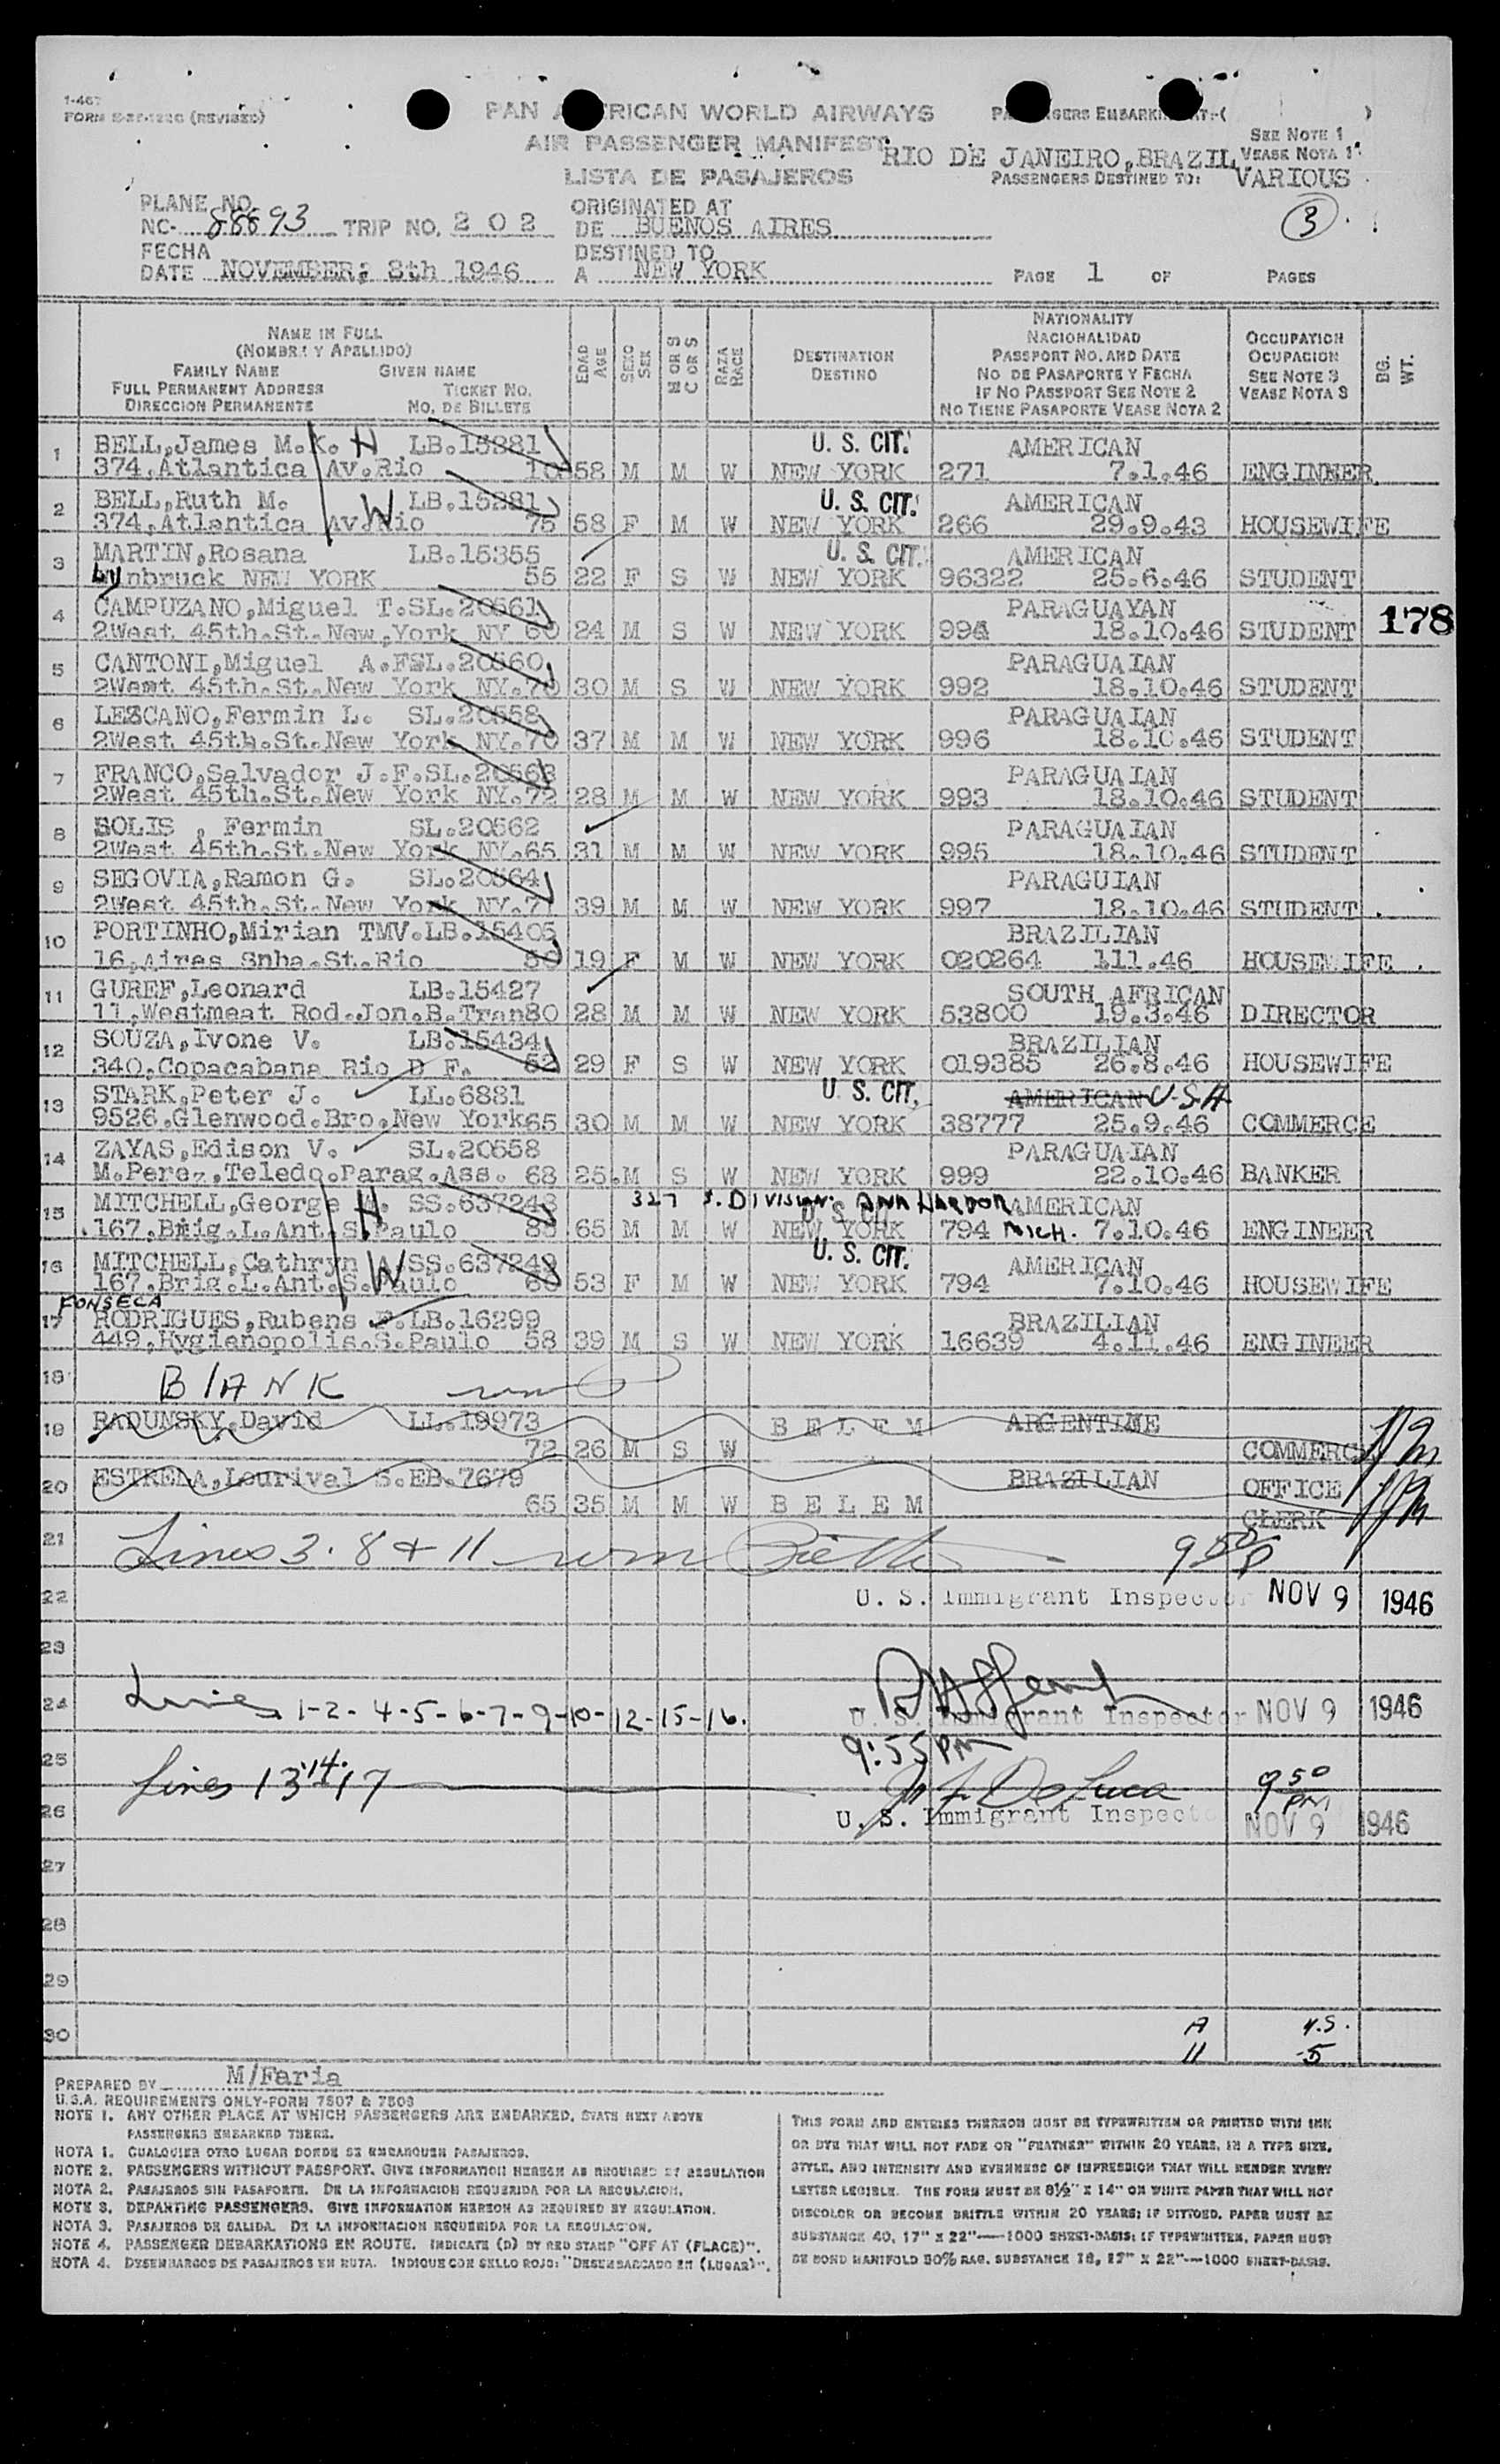 1-467
FORM (REVISED)
PAN AMERICAN WORLD AIRWAYS
AIR PASSENGER MANIFEST
LISTA DE PASAJEROS
PASSENGERS EMBARKING AT:-( )
SEE NOTE 1
VEASE NOTA 1
RIO DE JANEIRO,BRAZIL
PASSENGERS DESTINED TO: VARIOUS
3
PLANE NO.
NC- 88893 TRIP NO. 2 0 2
ORIGINATED AT
DE BUENOS AIRES
FECHA
DATE NOVEMBER, 8th 1946
DESTINED TO
A NEW YORK
PAGE 1 OF PAGES
NAME IN FULL
(NOMBRE Y APELLIDO)
FAMILY NAME GIVEN NAME
FULL PERMANENT ADDRESS TICKET NO.
DIRECCION PERMANENTE NO. DE BILLETE
EDAD AGE
SEXO SEX
M OR S C OR S
RAZA RACE
DESTINATION
DESTINO
NATIONALITY
NACIONALIDAD
PASSPORT NO. AND DATE
NO DE PASAPORTE Y FECHA
IF NO PASSPORT SEE NOTE 2
NO TIENE PASAPORTE VEASE NOTA 2
OCCUPATION
OCUPACION
SEE NOTE 3
VEASE NOTA 3
BG. WT.
1 BELL,James M.K. H LB.15281 U. S. CIT. AMERICAN
374,Atlantica Av.Rio 58 M M W NEW YORK 271 7.1.46 ENGINEER
2 BELL,Ruth M. W LB.15281 U. S. CIT. AMERICAN
374,Atlantica Av.Rio 75 58 F M W NEW YORK 266 29.9.43 HOUSEWIFE
3 MARTIN,Rosana LB.15355 U. S. CIT. AMERICAN
Lynbruck NEW YORK 55 22 F S W NEW YORK 96322 25.6.46 STUDENT
4 CAMPUZANO,Miguel T.SL.20561 PARAGUAYAN
2West 45th.St.New,York NY 60 24 M S W NEW YORK 994 18.10.46 STUDENT 178
5 CANTONI,Miguel A.F.SL.20560 PARAGUAIAN
2West 45th.St.New York NY.70 30 M S W NEW YORK 992 18.10.46 STUDENT
6 LESCANO,Fermin L. SL.20558 PARAGUAIAN
2West 45th.St.New York NY.70 37 M M W NEW YORK 996 18.10.46 STUDENT
7 FRANCO,Salvador J.F.SL.20563 PARAGUAIAN
2West 45th.St.New York NY.72 28 M M W NEW YORK 993 18.10.46 STUDENT
8 SOLIS , Fermin SL.20562 PARAGUAIAN
2West 45th.St.New York NY.65 31 M M W NEW YORK 995 18.10.46 STUDENT
9 SEGOVIA,Ramon G. SL.20564 PARAGUIAN
2West 45th.St.New York NY.71 39 M M W NEW YORK 997 18.10.46 STUDENT
10 PORTINHO,Mirian TMV.LB.15405 BRAZILIAN
16,Aires Snha.St.Rio 50 19 F M W NEW YORK 020264 111.46 HOUSEWIFE
11 GUREF,Leonard LB.15427 SOUTH AFRICAN
11,Westmeat Rod.Jon.B.Tran80 28 M M W NEW YORK 53800 19.3.46 DIRECTOR
12 SOUZA,Ivone V. LB.15434 BRAZILIAN
340,Copacabana Rio D F. 52 29 F S W NEW YORK 019385 26.8.46 HOUSEWIFE
13 STARK,Peter J. LL.6881 U. S. CIT. AMERICAN U.S.A
9526.Glenwood.Bro.New York65 30 M M W NEW YORK 38777 25.9.46 COMMERCE
14 ZAYAS,Edison V. SL.20658 PARAGUAIAN
M.Perez.Teledo.Parag.Ass. 68 25.M S W NEW YORK 999 22.10.46 BANKER
15 MITCHELL,George H. SS.637248 327 S. DIVISION ANN HARBOR AMERICAN
167.Brig.L.Ant.S.Paulo 88 65 M M W NEW YORK 794 MICH. 7.10.46 ENGINEER
16 MITCHELL,Cathryn W SS.637249 U. S. CIT. AMERICAN
167.Brig.L.Ant.S.Paulo 60 53 F M W NEW YORK 794 7.10.46 HOUSEWIFE
FONSECA
17 RODRIGUES,Rubens F.LB.16299 BRAZILIAN
449,Hygienopolis.S.Paulo 58 39 M S W NEW YORK 16639 4.11.46 ENGINEER
18 BlANK
19 RADUNSKY,David LL.19973 B E L E M ARGENTINE
72 26 M S W COMMERCE
20 ESTRELA,Lourival S.EB.7679 BRAZILIAN OFFICE
65 35 M M W B E L E M CLERK
21 Lines 3. 8 & 11 9 50 P
22 U. S. Immigrant Inspector NOV 9 1946
23
24 Lines 1-2-4-5-6-7-9-10-12-15-16.
U. S. Immigrant Inspector NOV 9 1946
9:55 PM
25 Lines 13 14 17 De Luca 9 50 PM
26 U. S. Immigrant Inspector NOV 9 1946
27
28
29
30 A U.S.
11 5
PREPARED BY M/Faria
U.S.A. REQUIREMENTS ONLY-FORM 7507 & 7508
NOTE 1. ANY OTHER PLACE AT WHICH PASSENGERS ARE EMBARKED, STATE NEXT ABOVE
PASSENGERS EMBARKED THERE.
NOTA 1. CUALQUIER OTRO LUGAR DONDE SE EMBARQUEN PASAJEROS.
NOTE 2. PASSENGERS WITHOUT PASSPORT. GIVE INFORMATION HEREON AS REQUIRED BY REGULATION
NOTA 2. PASAJEROS SIN PASAPORTE. DE LA INFORMACION REQUERIDA POR LA REGULACION.
NOTE 3. DEPARTING PASSENGERS. GIVE INFORMATION HEREON AS REQUIRED BY REGULATION.
NOTA 3. PASAJEROS DE SALIDA. DE LA INFORMACION REQUERIDA POR LA REGULACION.
NOTE 4. PASSENGER DEBARKATIONS EN ROUTE. INDICATE (D) BY RED STAMP "OFF AT (PLACE)".
NOTA 4. DESEMBARCOS DE PASAJEROS EN RUTA. INDIQUE CON SELLO ROJO: "DESEMBARCADO EN (LUGAR)".
THIS FORM AND ENTRIES THEREON MUST BE TYPEWRITTEN OR PRINTED WITH INK
OR DYE THAT WILL NOT FADE OR "FEATHER" WITHIN 20 YEARS, IN A TYPE SIZE,
STYLE, AND INTENSITY AND EVENNESS OF IMPRESSION THAT WILL RENDER EVERY
LETTER LEGIBLE. THE FORM MUST BE 8½" X 14" ON WHITE PAPER THAT WILL NOT
DISCOLOR OR BECOME BRITTLE WITHIN 20 YEARS; IF DITTOED, PAPER MUST BE
SUBSTANCE 40, 17" X 22"—1000 SHEET-BASIS; IF TYPEWRITTEN, PAPER MUST
BE BOND MANIFOLD 50% RAG. SUBSTANCE 16, 17" X 22"—1000 SHEET-BASIS.